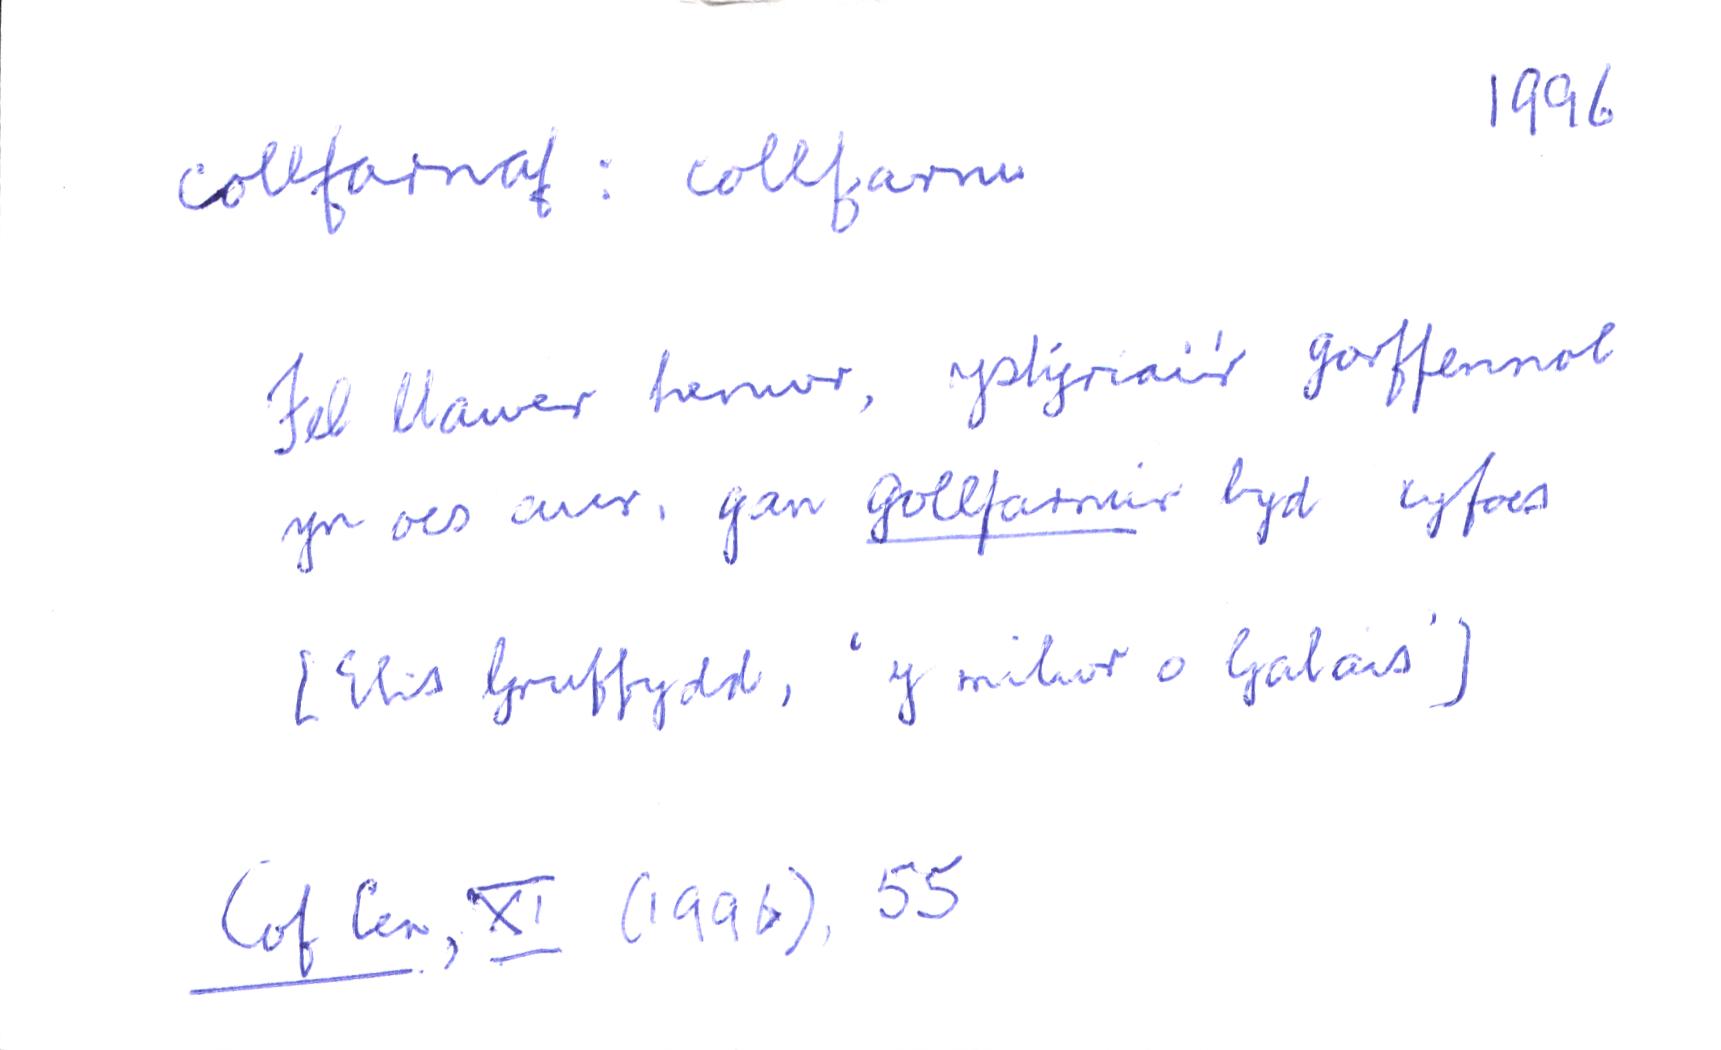 1996
collfarnaf : collfarnu
Fel llawer henwr, ystyriai'r gorffennol
yn oes aur, gan gollfarnu'r byd cyfoes
[Elis Gruffydd, 'y milwr o Galais']
Cof Cen, XI (1996), 55